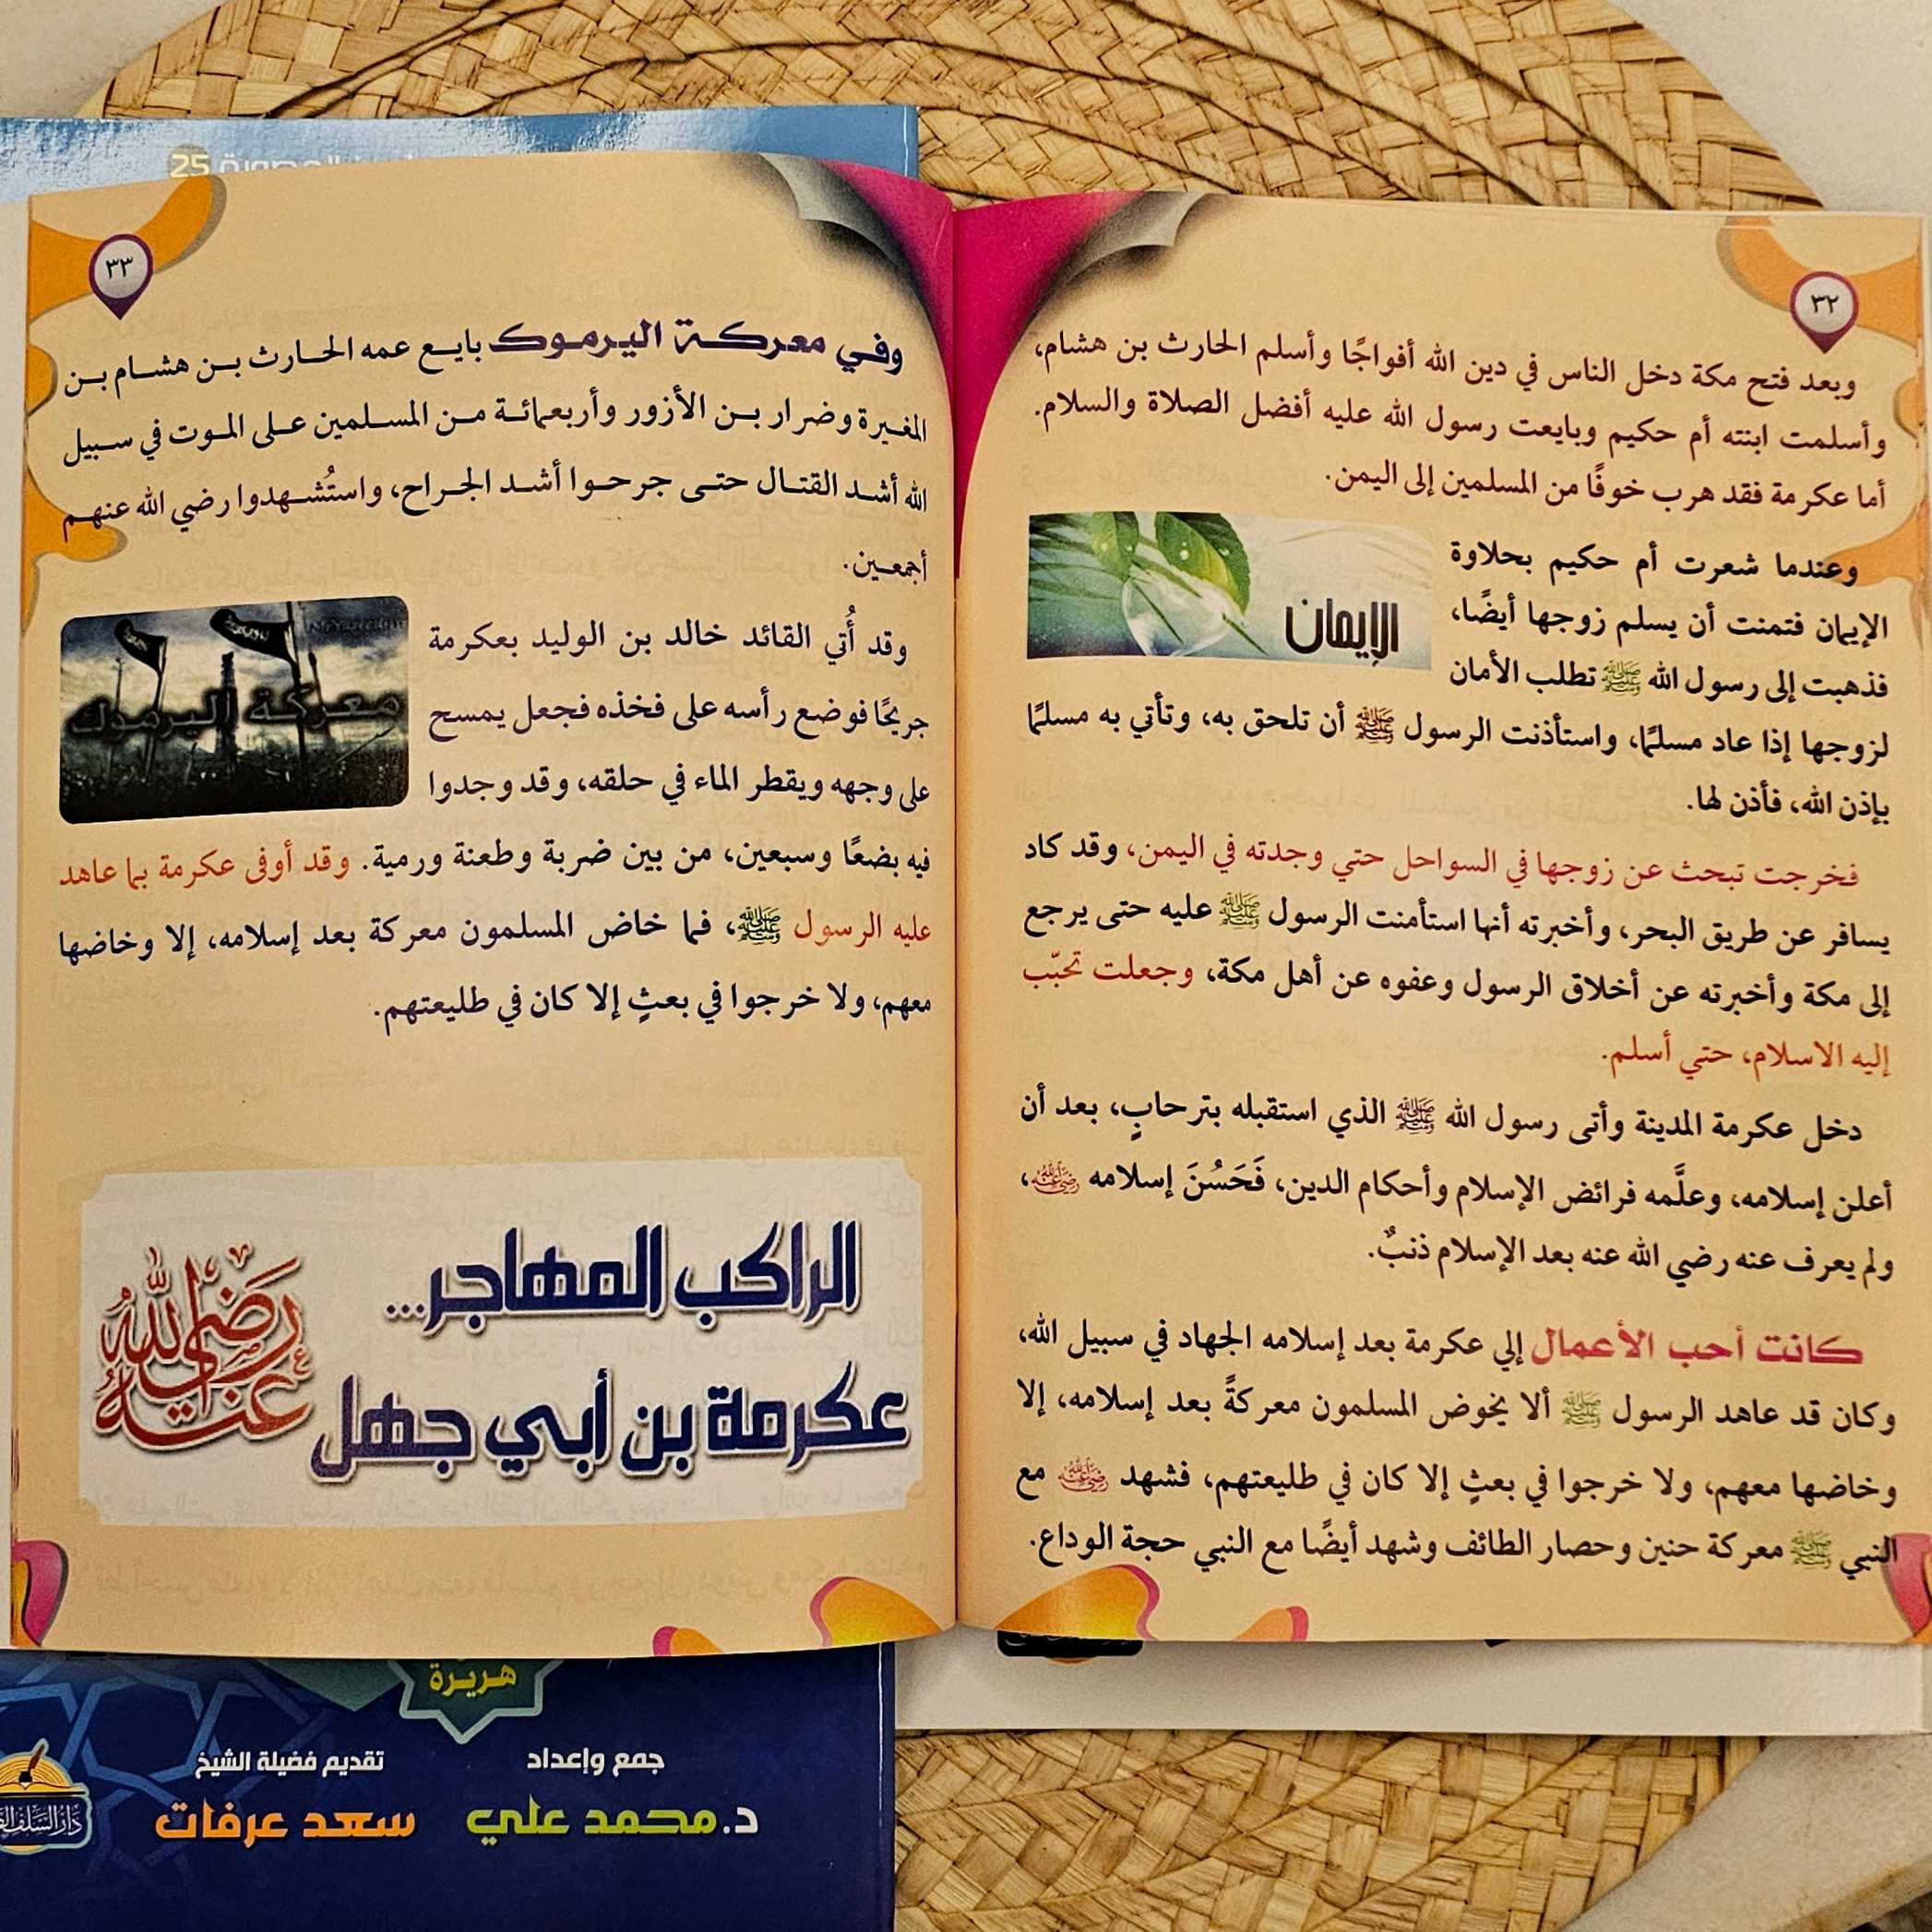 ٣٢
وبعد فتح مكة دخل الناس في دين الله أفواجًا وأسلم الحارث بن هشام،
وأسلمت ابنته أم حكيم وبايعت رسول الله عليه أفضل الصلاة والسلام.
أما عكرمة فقد هرب خوفًا من المسلمين إلى اليمن.
وعندما شعرت أم حكيم بحلاوة
الإيمان فتمنت أن يسلم زوجها أيضًا،
فذهبت إلى رسول الله ﷺ تطلب الأمان
الإيمان
لزوجها إذا عاد مسلمًا، واستأذنت الرسول ﷺ أن تلحق به، وتأتي به مسلمًا
بإذن الله، فأذن لها.
فخرجت تبحث عن زوجها في السواحل حتي وجدته في اليمن، وقد كاد
يسافر عن طريق البحر، وأخبرته أنها استأمنت الرسول ﷺ عليه حتى يرجع
إلى مكة وأخبرته عن أخلاق الرسول وعفوه عن أهل مكة، وجعلت تحبّب
إليه الاسلام، حتي أسلم.
دخل عكرمة المدينة وأتى رسول الله ﷺ الذي استقبله بترحابٍ، بعد أن
أعلن إسلامه، وعلَّمه فرائض الإسلام وأحكام الدين، فَحَسُنَ إسلامه رضي الله عنه،
ولم يعرف عنه رضي الله عنه بعد الإسلام ذنبٌ.
كانت أحب الأعمال إلي عكرمة بعد إسلامه الجهاد في سبيل الله،
وكان قد عاهد الرسول ﷺ ألا يخوض المسلمون معركةً بعد إسلامه، إلا
وخاضها معهم، ولا خرجوا في بعثٍ إلا كان في طليعتهم، فشهد رضي الله عنه مع
النبي ﷺ معركة حنين وحصار الطائف وشهد أيضًا مع النبي حجة الوداع.
٣٣
وفي معركة اليرموك بايع عمه الحارث بن هشام بن
المغيرة وضرار بن الأزور وأربعمائة من المسلمين على الموت في سبيل
الله أشد القتال حتى جرحوا أشد الجراح، واستُشهدوا رضي الله عنهم
أجمعين.
وقد أُتي القائد خالد بن الوليد بعكرمة
جريحًا فوضع رأسه على فخذه فجعل يمسح
على وجهه ويقطر الماء في حلقه، وقد وجدوا
معركة اليرموك
فيه بضعًا وسبعين، من بين ضربة وطعنة ورمية. وقد أوفى عكرمة بما عاهد
عليه الرسول ﷺ، فما خاض المسلمون معركة بعد إسلامه، إلا وخاضها
معهم، ولا خرجوا في بعثٍ إلا كان في طليعتهم.
الراكب المهاجر...
عكرمة بن أبي جهل
رضي الله عنه
25
هريرة
جمع وإعداد
د.محمد علي
تقديم فضيلة الشيخ
سعد عرفات
دار السلف